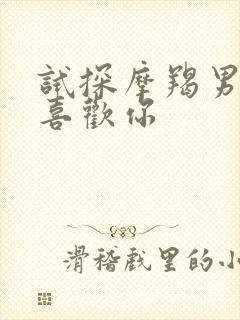 試探摩羯男
喜歡你
滑稽戲里的小